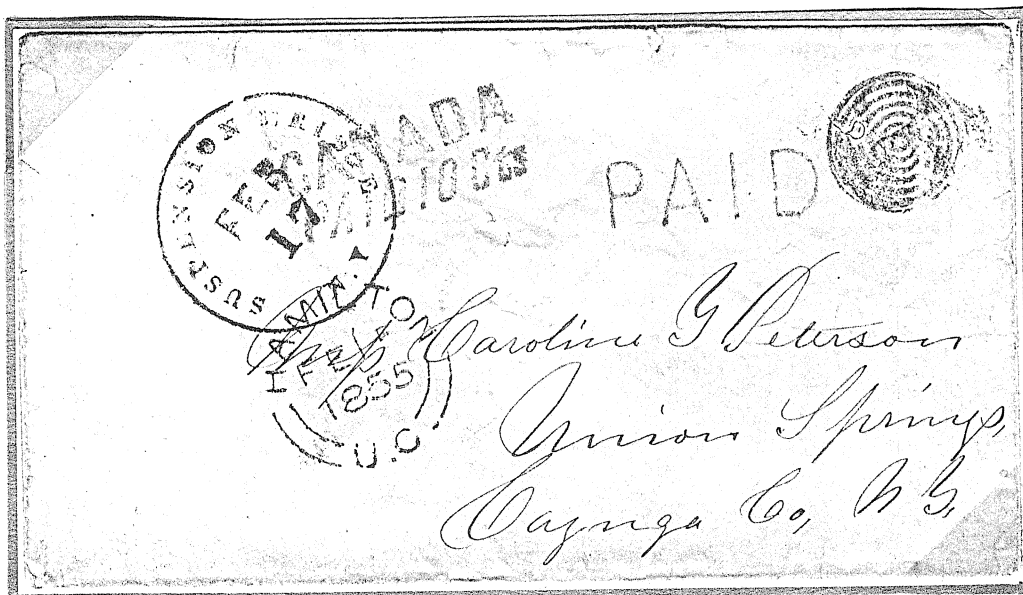 SUSPENSION BRIDGE N.Y
FEB
17
CANADA
PAID 10 Cts
PAID
HAMILTON
1855
U.C
Caroline G Peterson
Union Springs,
Cayuga Co, N Y,